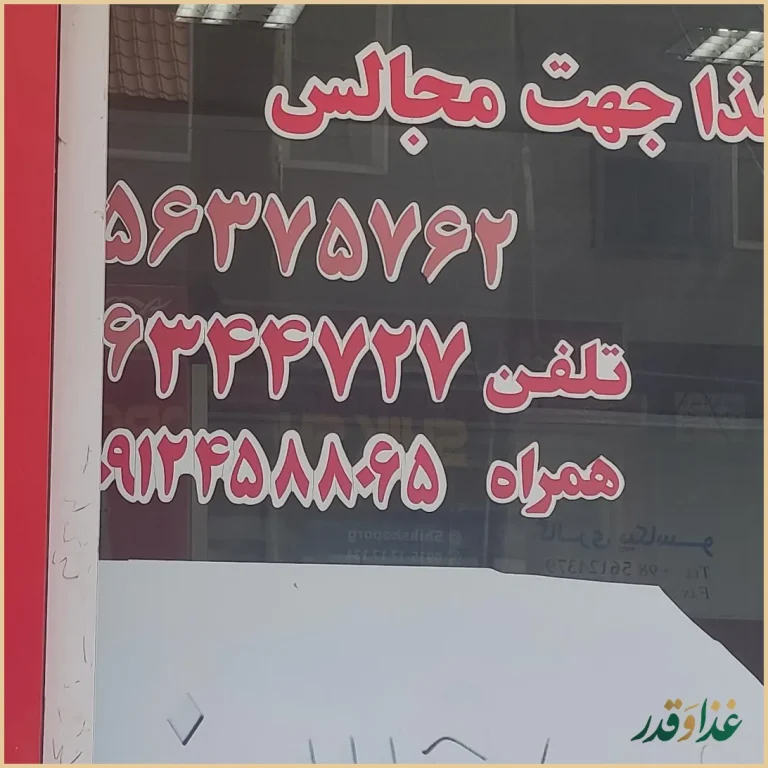 غذا جهت مجالس
۵۶۳۷۵۷۶۲
تلفن ۶۳۴۴۷۲۷
همراه ۰۹۱۲۴۵۸۸۰۶۵
گالری پیکاسو
Tel: +98 56124379
Fax
غذا و قدر